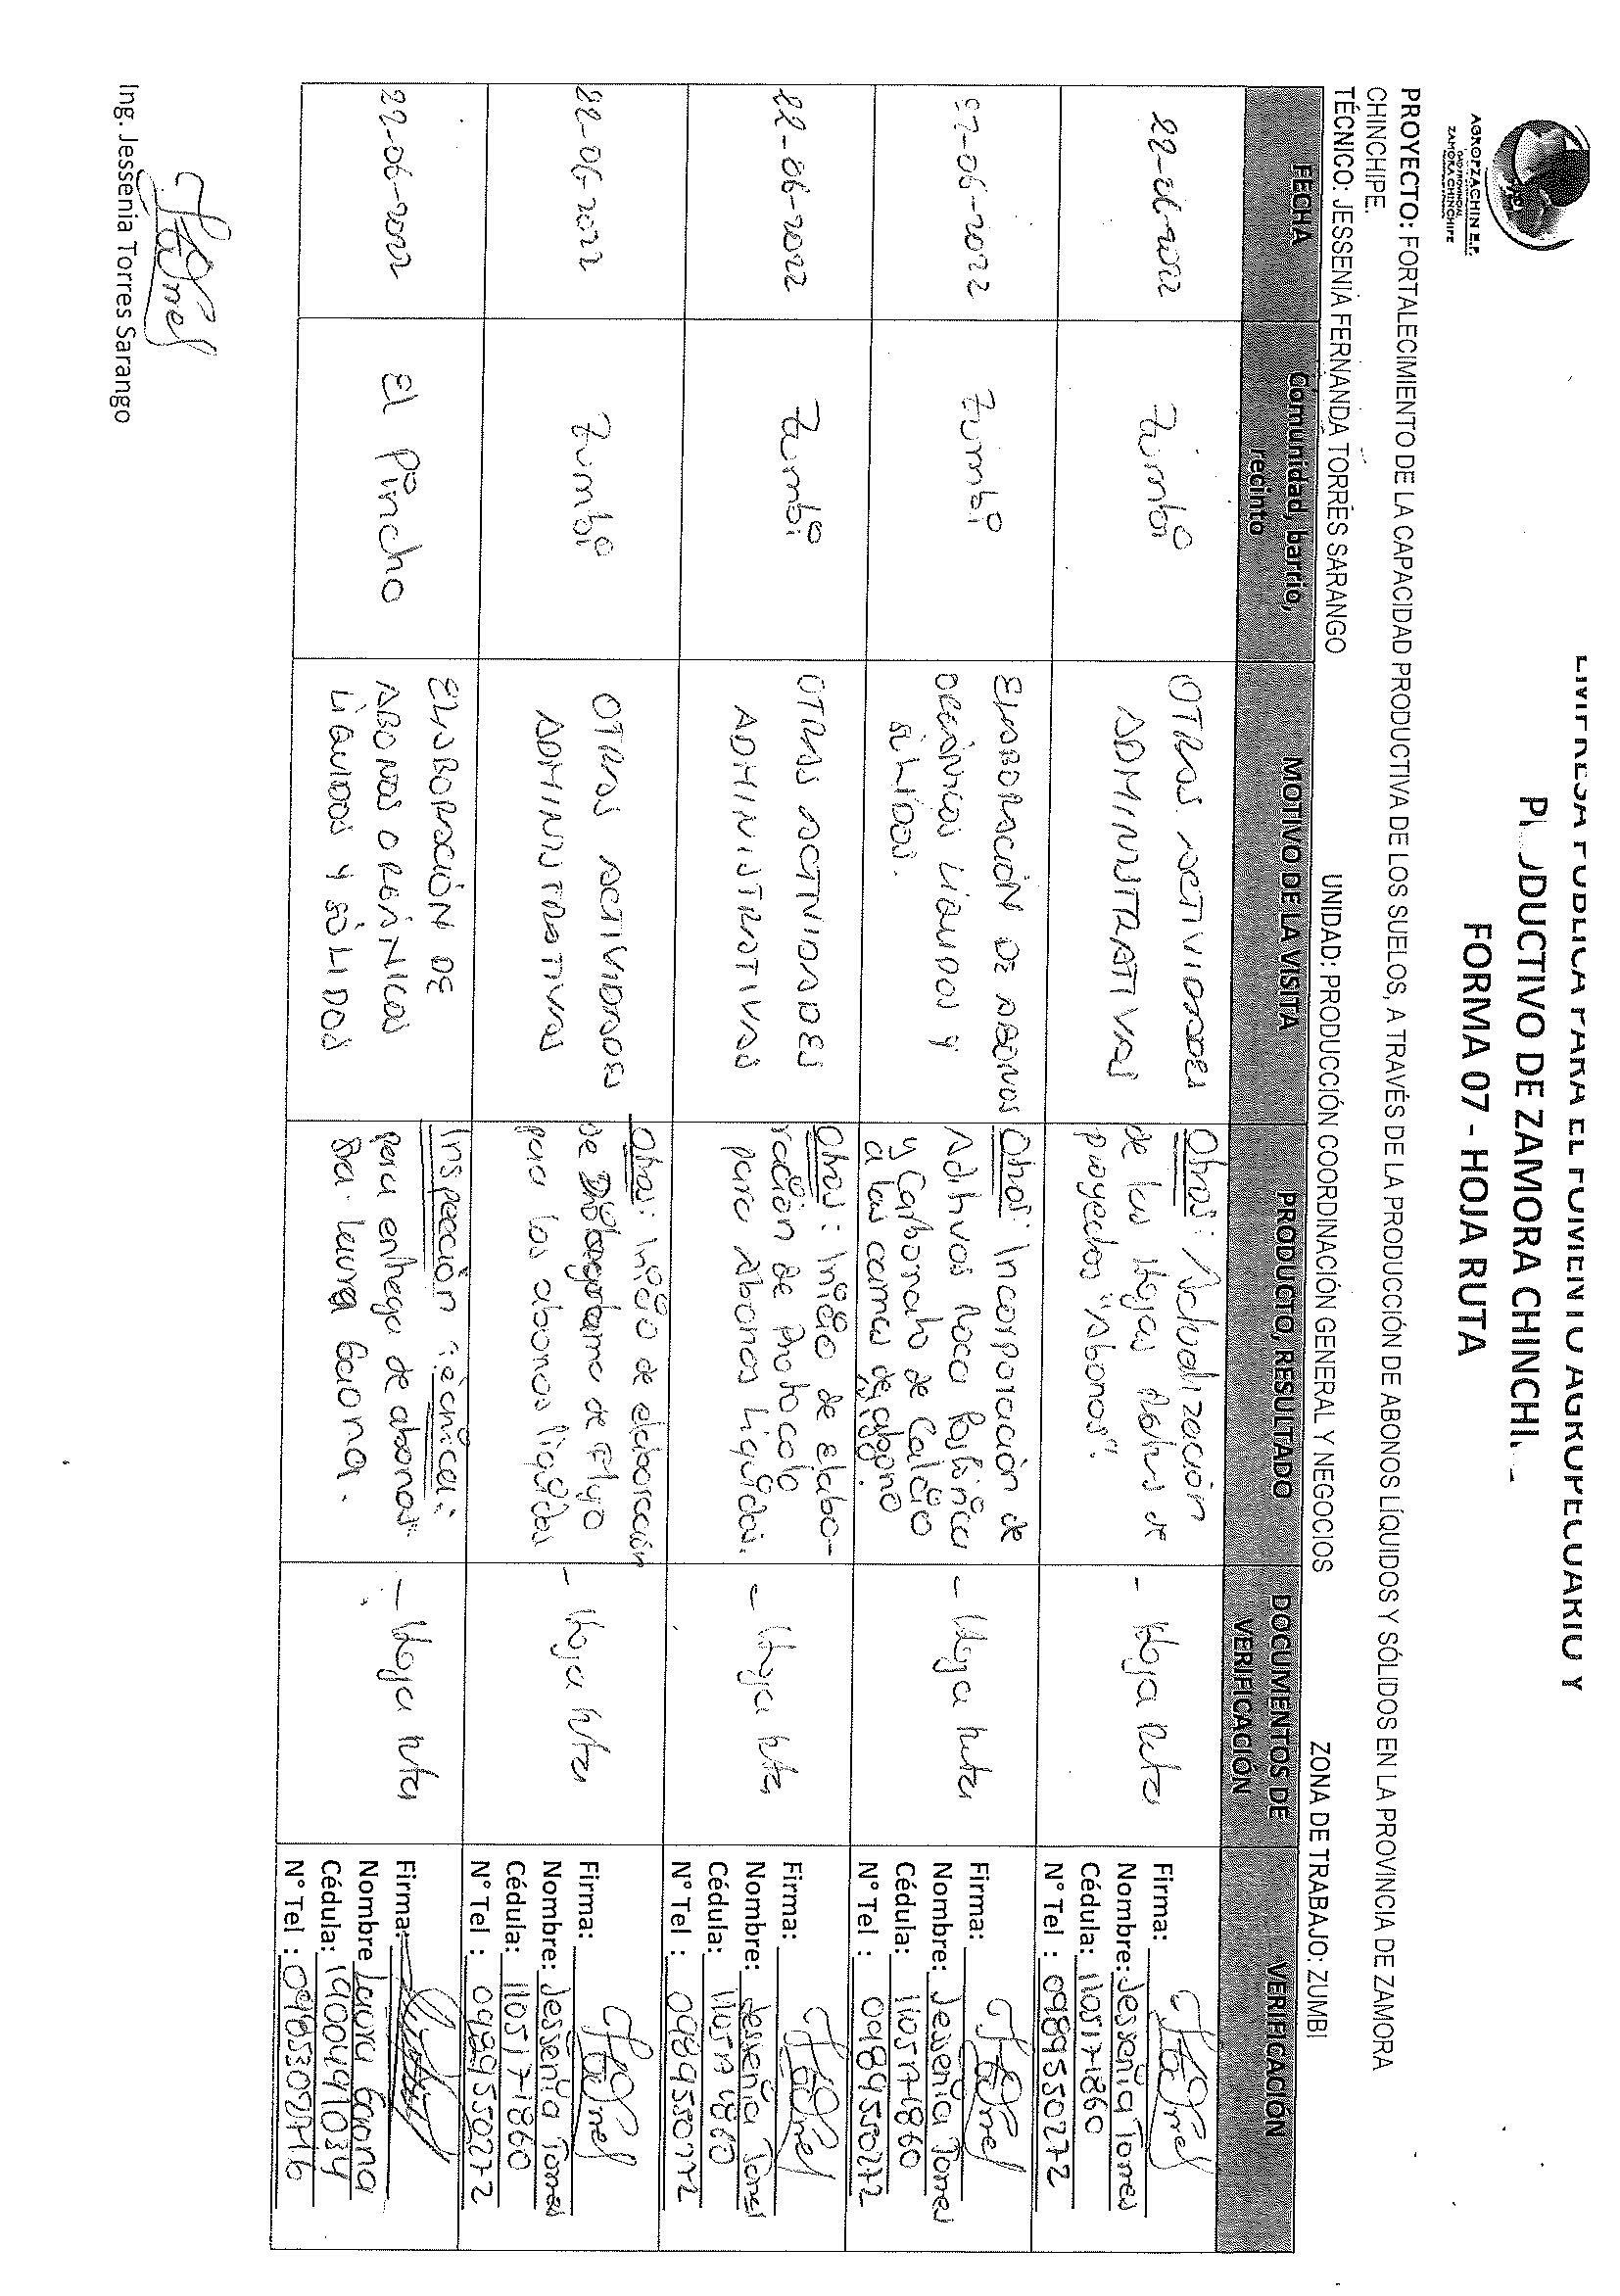 EMPRESA PÚBLICA PARA EL FOMENTO AGROPECUARIO Y
PRODUCTIVO DE ZAMORA CHINCHI
FORMA 07 - HOJA RUTA
AGROPZACHIN E.P.
GAD PROVINCIAL
ZAMORA CHINCHIPE
PROYECTO: FORTALECIMIENTO DE LA CAPACIDAD PRODUCTIVA DE LOS SUELOS, A TRAVÉS DE LA PRODUCCIÓN DE ABONOS LÍQUIDOS Y SÓLIDOS EN LA PROVINCIA DE ZAMORA
CHINCHIPE.
TÉCNICO: JESSENIA FERNANDA TORRES SARANGO UNIDAD: PRODUCCIÓN COORDINACIÓN GENERAL Y NEGOCIOS ZONA DE TRABAJO: ZUMBI
FECHA
Comunidad, barrio,
recinto
MOTIVO DE LA VISITA
PRODUCTO, RESULTADO
DOCUMENTOS DE
VERIFICACIÓN
VERIFICACIÓN
22-06-2022
Zumbi
OTRAS ACTIVIDADES
ADMINISTRATIVAS
Otras: Actualización
de las Hojas Rutas de
proyectos "Abonos".
- Hoja Ruta
Firma:
Nombre: Jessenia Torres
Cédula: 1105171860
N° Tel : 0989550272
27-06-2022
Zumbi
ELABORACIÓN DE ABONOS
ORGÁNICOS LÍQUIDOS Y
SÓLIDOS.
Otras: Incorporación de
Aditivos Roca Fosfórica
y Carbonato de Calcio
a las camas de abono
- Hoja Ruta
Firma:
Nombre: Jessenia Torres
Cédula: 1105171860
N° Tel : 0989550272
22-06-2022
Zumbi
OTRAS ACTIVIDADES
ADMINISTRATIVAS
Otras: Inicio de elabo-
ración de Protocolo
para Abonos Líquidos.
- Hoja Ruta
Firma:
Nombre: Jessenia Torres
Cédula: 1105171860
N° Tel : 0989550272
22-06-2022
Zumbi
OTRAS ACTIVIDADES
ADMINISTRATIVAS
Otras: Inicio de elaboración
de de Flujo
para los abonos líquidos
- Hoja Ruta
Firma:
Nombre: Jessenia Torres
Cédula: 1105171860
N° Tel : 0989550272
22-06-2022
El Pincho
ELABORACIÓN DE
ABONOS ORGÁNICOS
LÍQUIDOS Y SÓLIDOS
Inspección Técnica:
para entrega de abonos
Sra. Laura Gaona.
- Hoja Ruta
Firma:
Nombre Laura Gaona
Cédula: 1900491034
N° Tel :
Ing. Jessenia Torres Sarango